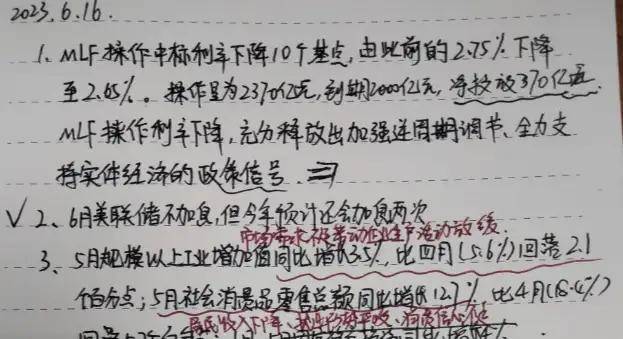 2023.6.16.
1. MLF操作中标利率下降10个基点,由此前的2.75%下降
至2.65%。操作量为2370亿元,到期2000亿元,净投放370亿元.
MLF操作利率下降,充分释放出加强逆周期调节、全力支
持实体经济的政策信号.
√ 2、6月美联储不加息,但今年预计还会加息两次
市场需求不足带动企业生产活动放缓.
3、5月规模以上工业增加值同比增长3.5%,比四月(5.6%)回落2.1
个百分点;5月社会消费品零售总额同比增长12.7%,比4月(18.4%)
居民收入下降、就业形势严峻、消费信心不足